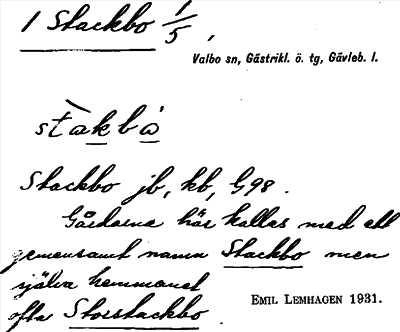 1 Stackbo 1/5,
Valbo sn, Gästrikl. ö. tg, Gävleb. l.
stàkbò
Stackbo jb, kb, G98.
Gårdarna här kallas med ett
gemensamt namn Stackbo men
själva hemmanet
ofta Storstackbo.
EMIL LEMHAGEN 1931.